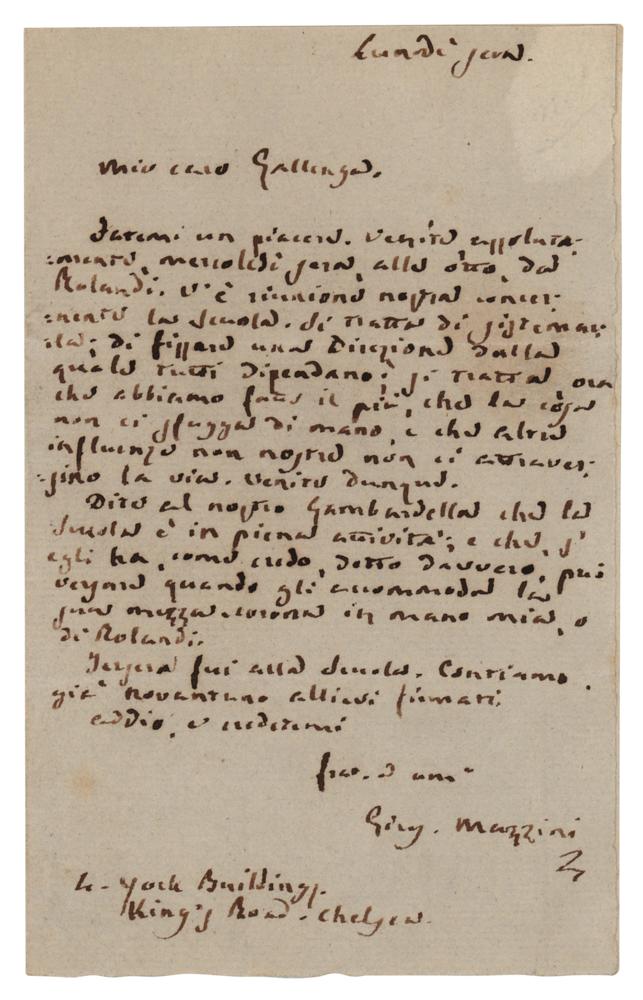 Lunedì sera.
Mio caro Gallenga.
Fatemi un piacere. Venite assoluta-
mente, mercoledì sera, alle otto, da
Rolandi. V'è riunione nostra concer-
nente la Scuola. Si tratta di sistemar-
la; di fissare una Direzione dalla
quale tutti dipendano; si tratta ora
che abbiamo fatto il più, che la cosa
non ci sfugga di mano, e che altre
influenze non nostre non ci attraver-
sino la via. Venite dunque.
Dite al nostro Gambardella che la
Scuola è in piena attività; e che, s'
egli ha, come credo, detto davvero, può
versare quando gli accommoda la
sua mezza corona in mano mia, o
di Rolandi.
Jersera fui alla Scuola. Contiamo
già novantuno allievi firmati.
addio, e credetemi
Gius. Mazzini
4. York Buildings.
King's Road. Chelsea.